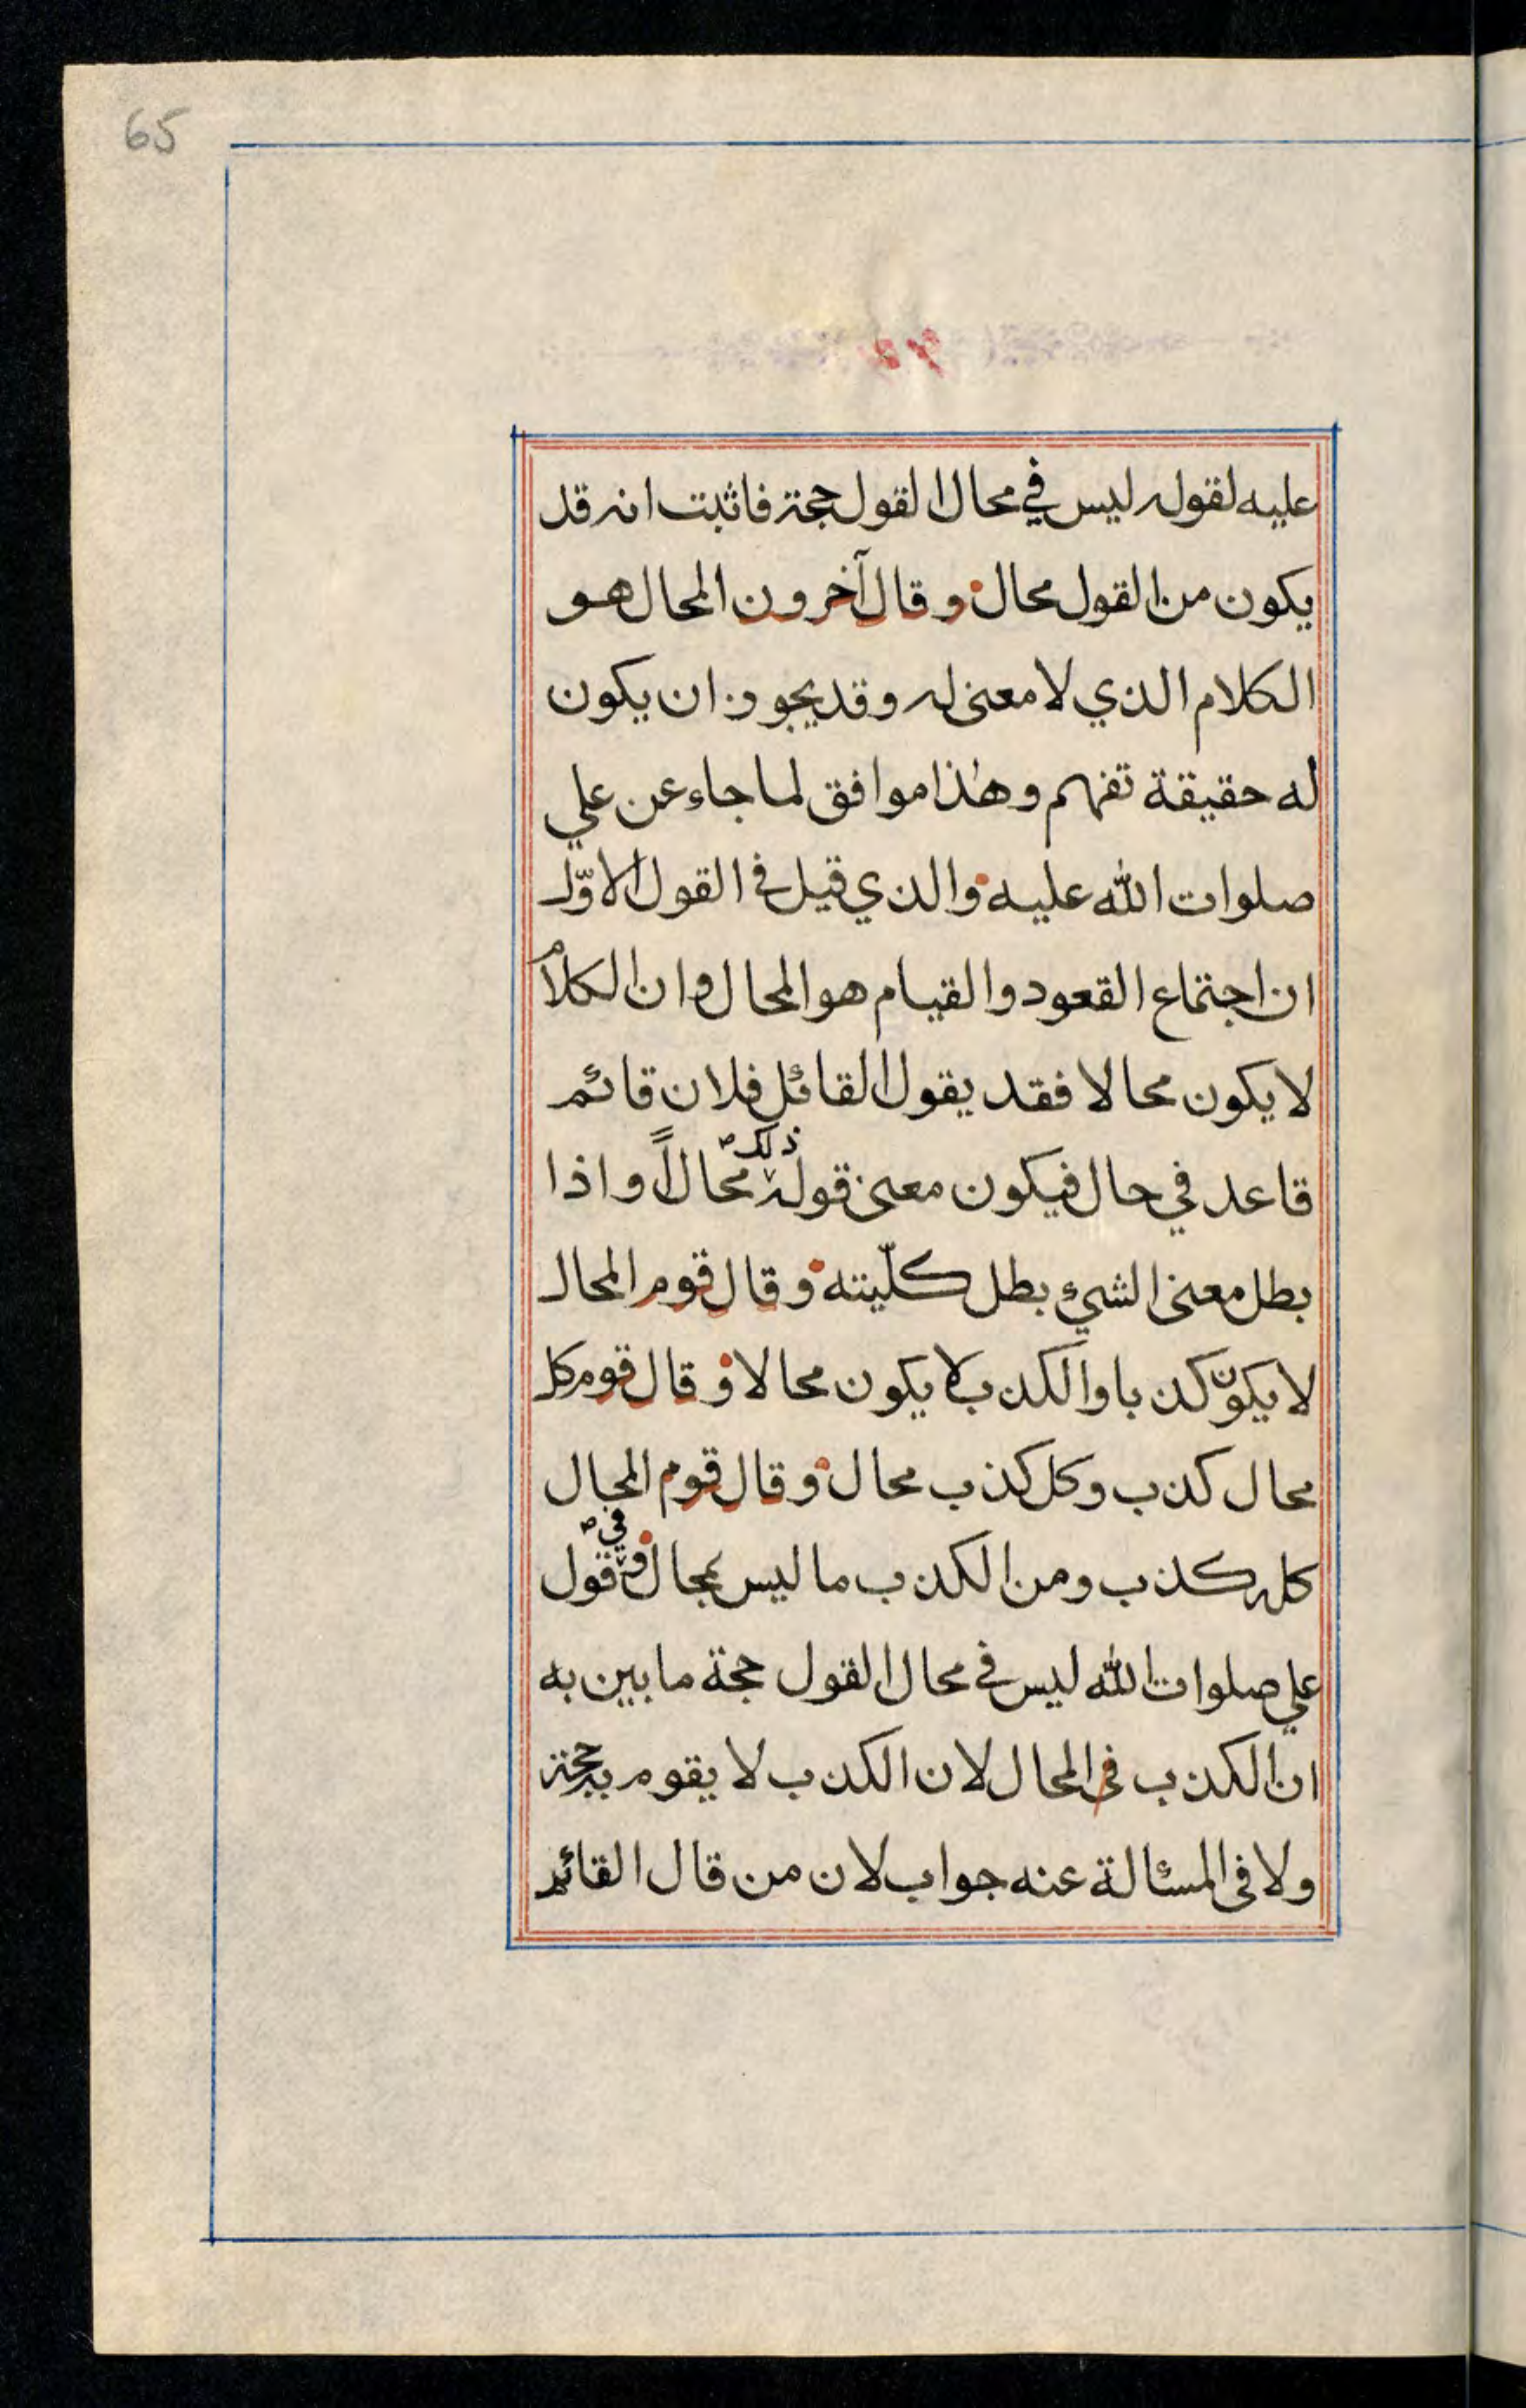 65
عليه لقوله ليس في محال القول حجة فاثبت انه قد
يكون من القول محال وقال آخرون المحال هو
الكلام الذي لا معنى له وقد يجوز ان يكون
له حقيقة تفهم وهذا موافق لما جاء عن علي
صلوات الله عليه والذي قيل في القول الاوّل
ان اجتماع القعود والقيام هو المحال وان الكلام
لا يكون محالا فقد يقول القائل فلان قائم
قاعد في حال فيكون معنى قوله ذلك محالاً واذا
بطل معنى الشيء بطل كلّيته وقال قوم المحال
لا يكون كذبا والكذب لا يكون محالا وقال قوم كل
محال كذب وكل كذب محال وقال قوم المحال
كله كذب ومن الكذب ما ليس بمحال وفي قول
علي صلوات الله ليس في محال القول حجة ما بين به
ان الكذب في المحال لان الكذب لا يقوم به حجة
ولا في المسئالة عنه جواب لان من قال القائم